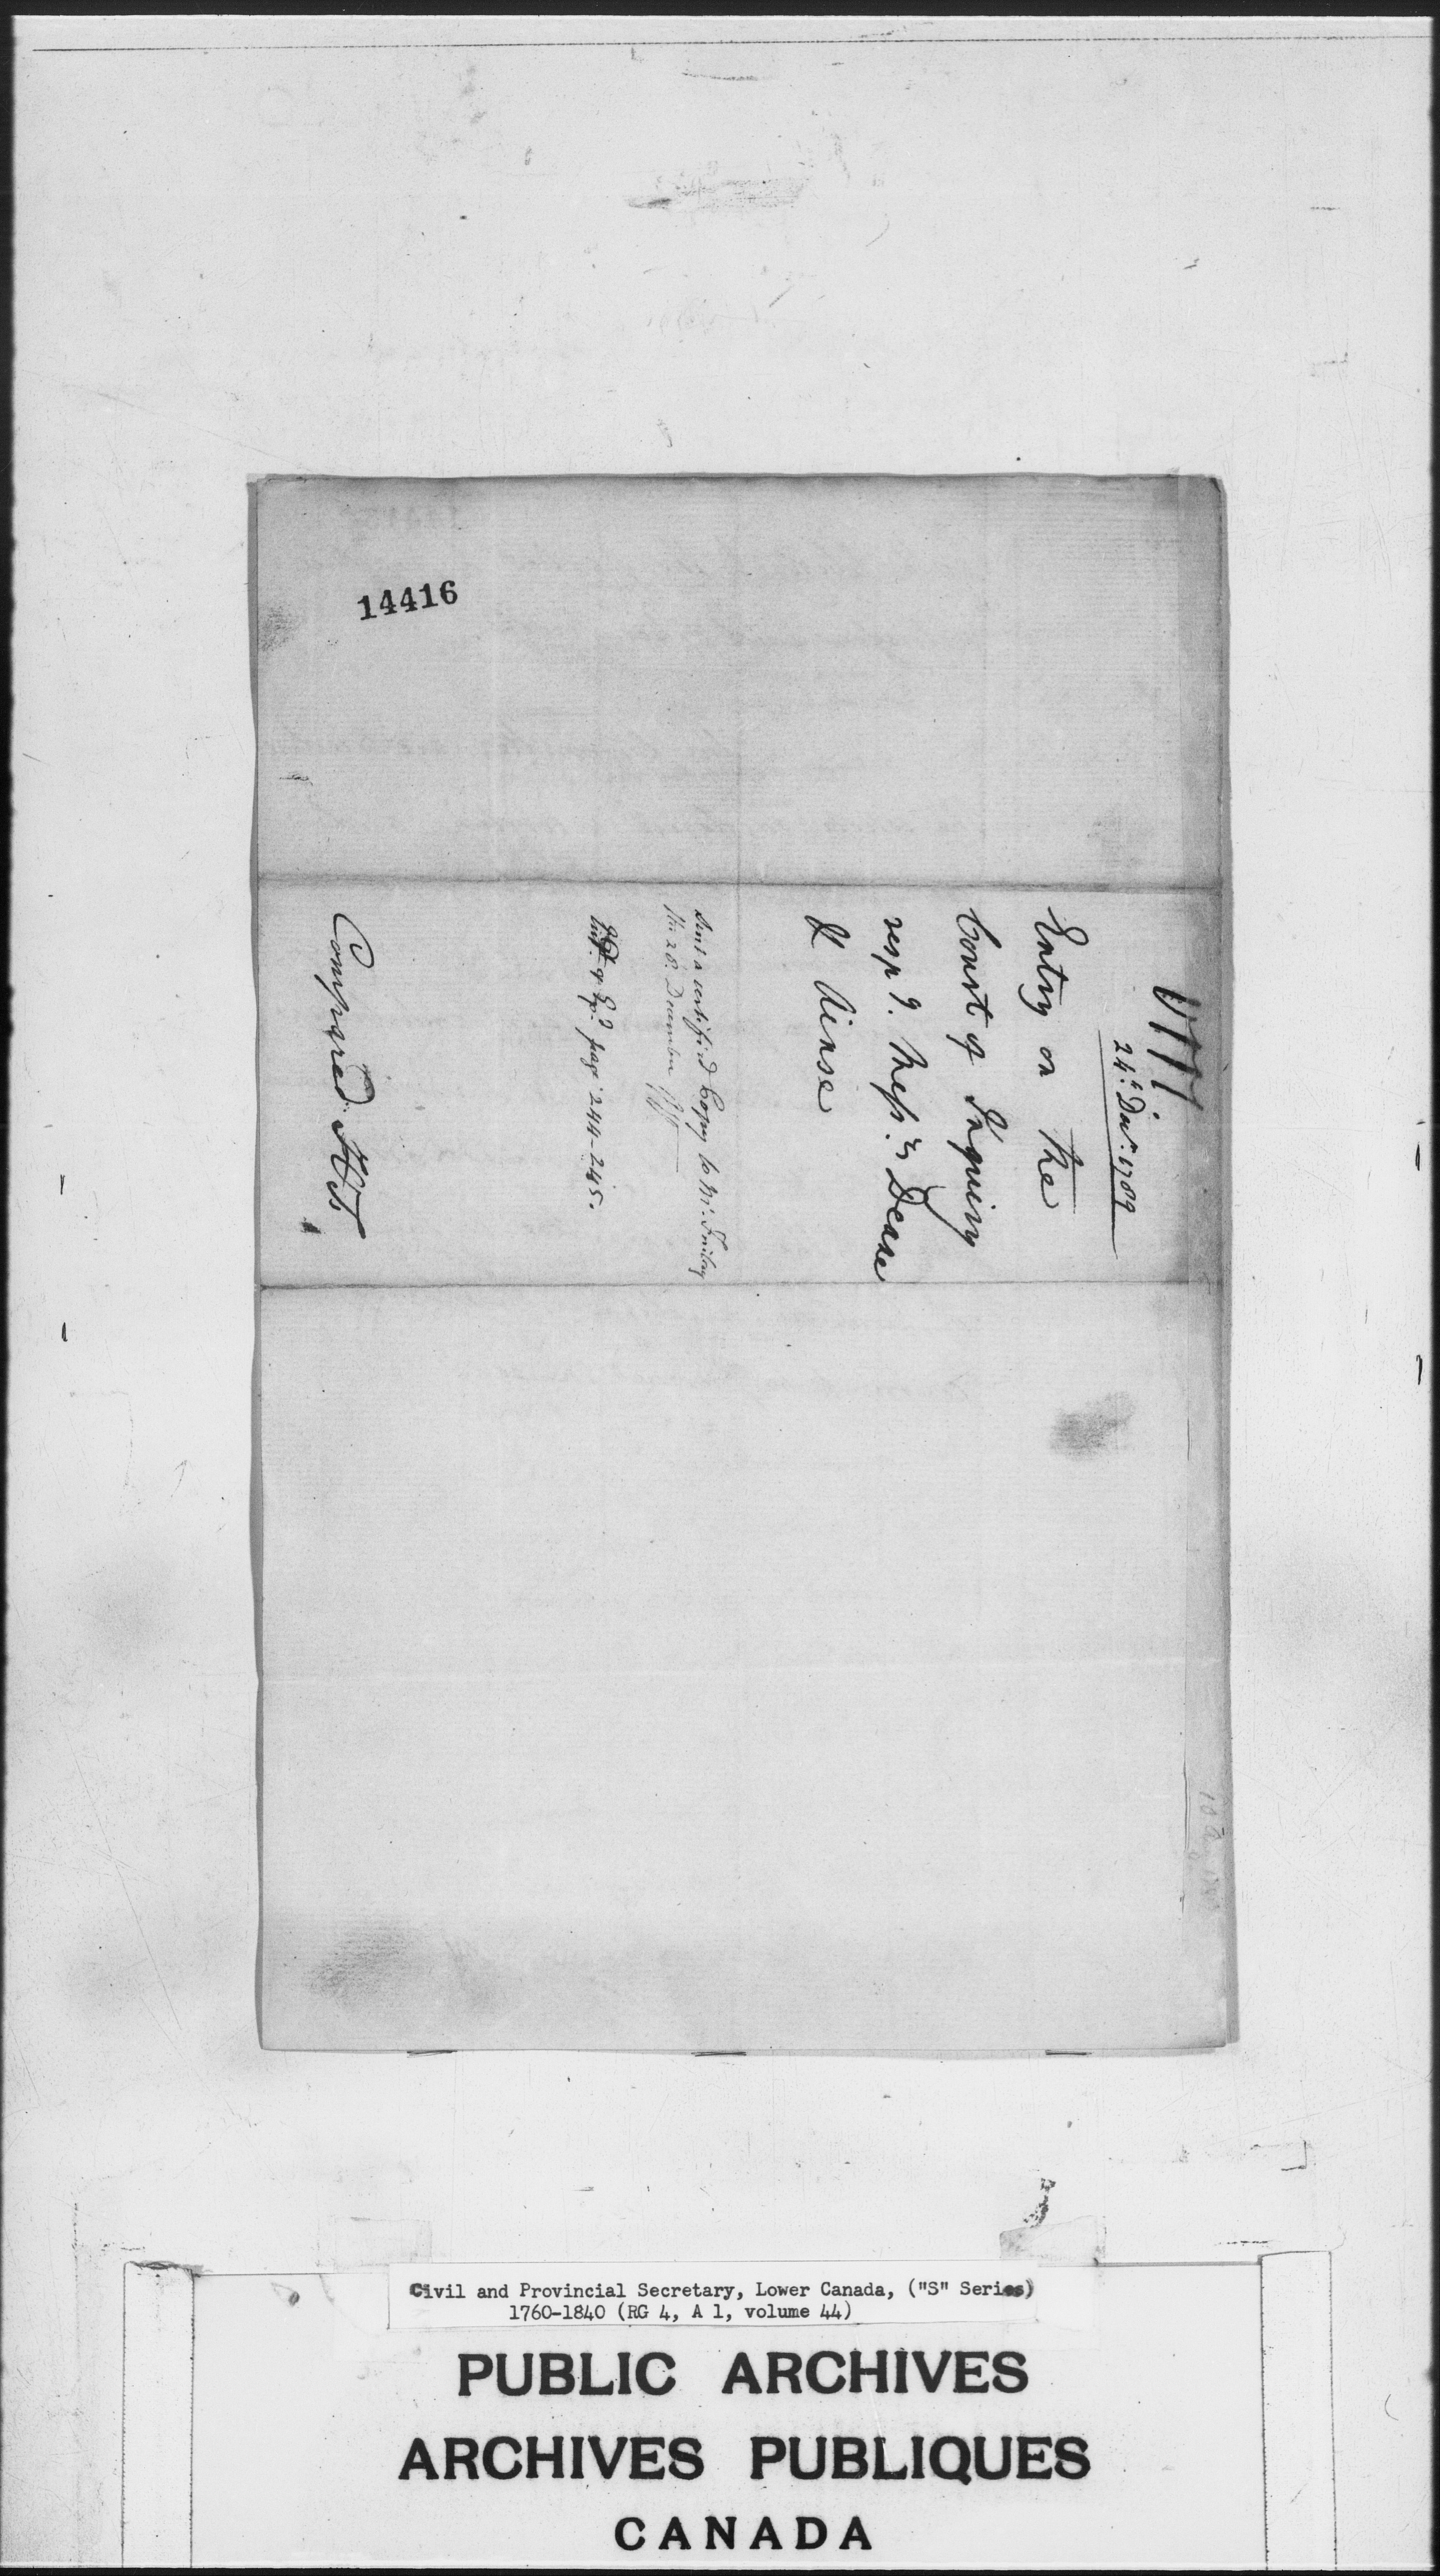 14416
24th Decr. 1789
Entry on the
Court of Inquiry
resp.g Messrs Dease
& Ainse
Sent a certified Copy to Mr. Finlay
the 28. December 1789
page 244-245.
Compared
Civil and Provincial Secretary, Lower Canada, ("S" Series)
1760-1840 (RG 4, A 1, volume 44)
PUBLIC ARCHIVES
ARCHIVES PUBLIQUES
CANADA